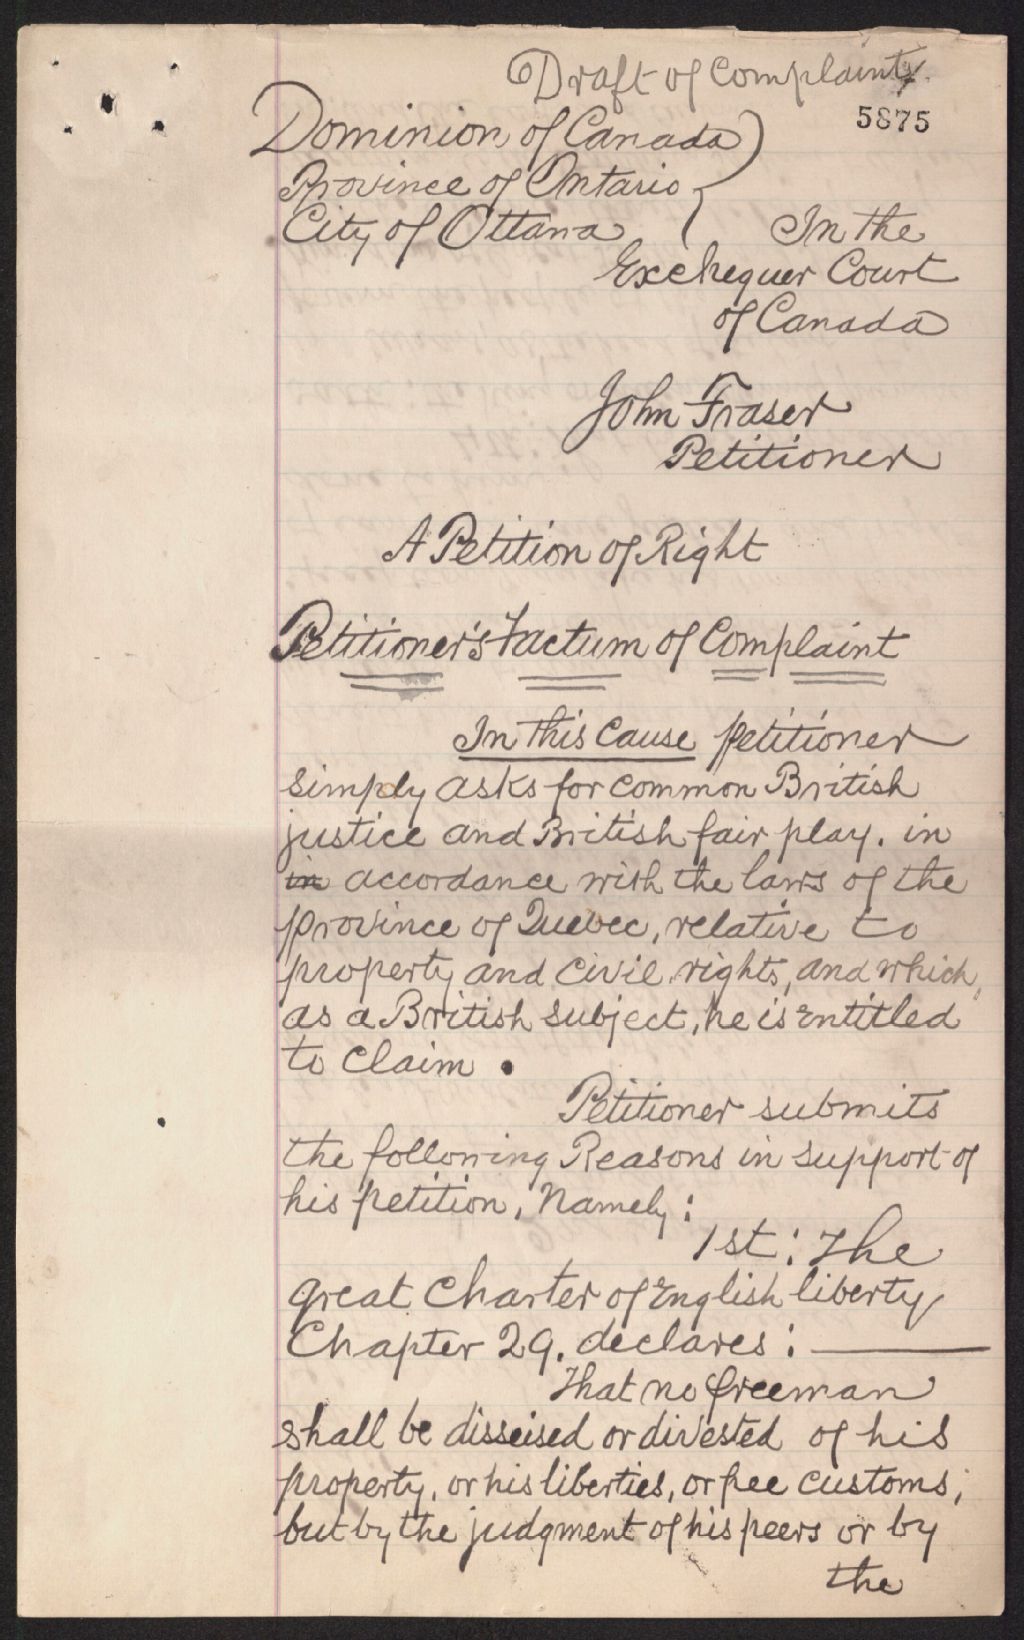 Draft of Complaint
5875
Dominion of Canada
Province of Ontario
City of Ottawa
In the
Exchequer Court
of Canada
John Fraser
Petitioner
A Petition of Right
Petitioner's Factum of Complaint
In this Cause petitioner
simply asks for common British
justice and British fair play. in
in accordance with the laws of the
province of Quebec, relative to
property and civil rights, and which,
as a British subject, he is entitled
to claim.
Petitioner submits
the following Reasons in support of
his petition, Namely:
1st: The
great Charter of English liberty
Chapter 29. declares:
That no freeman
shall be disseised or divested of his
property, or his liberties, or free customs;
but by the judgment of his peers or by
the